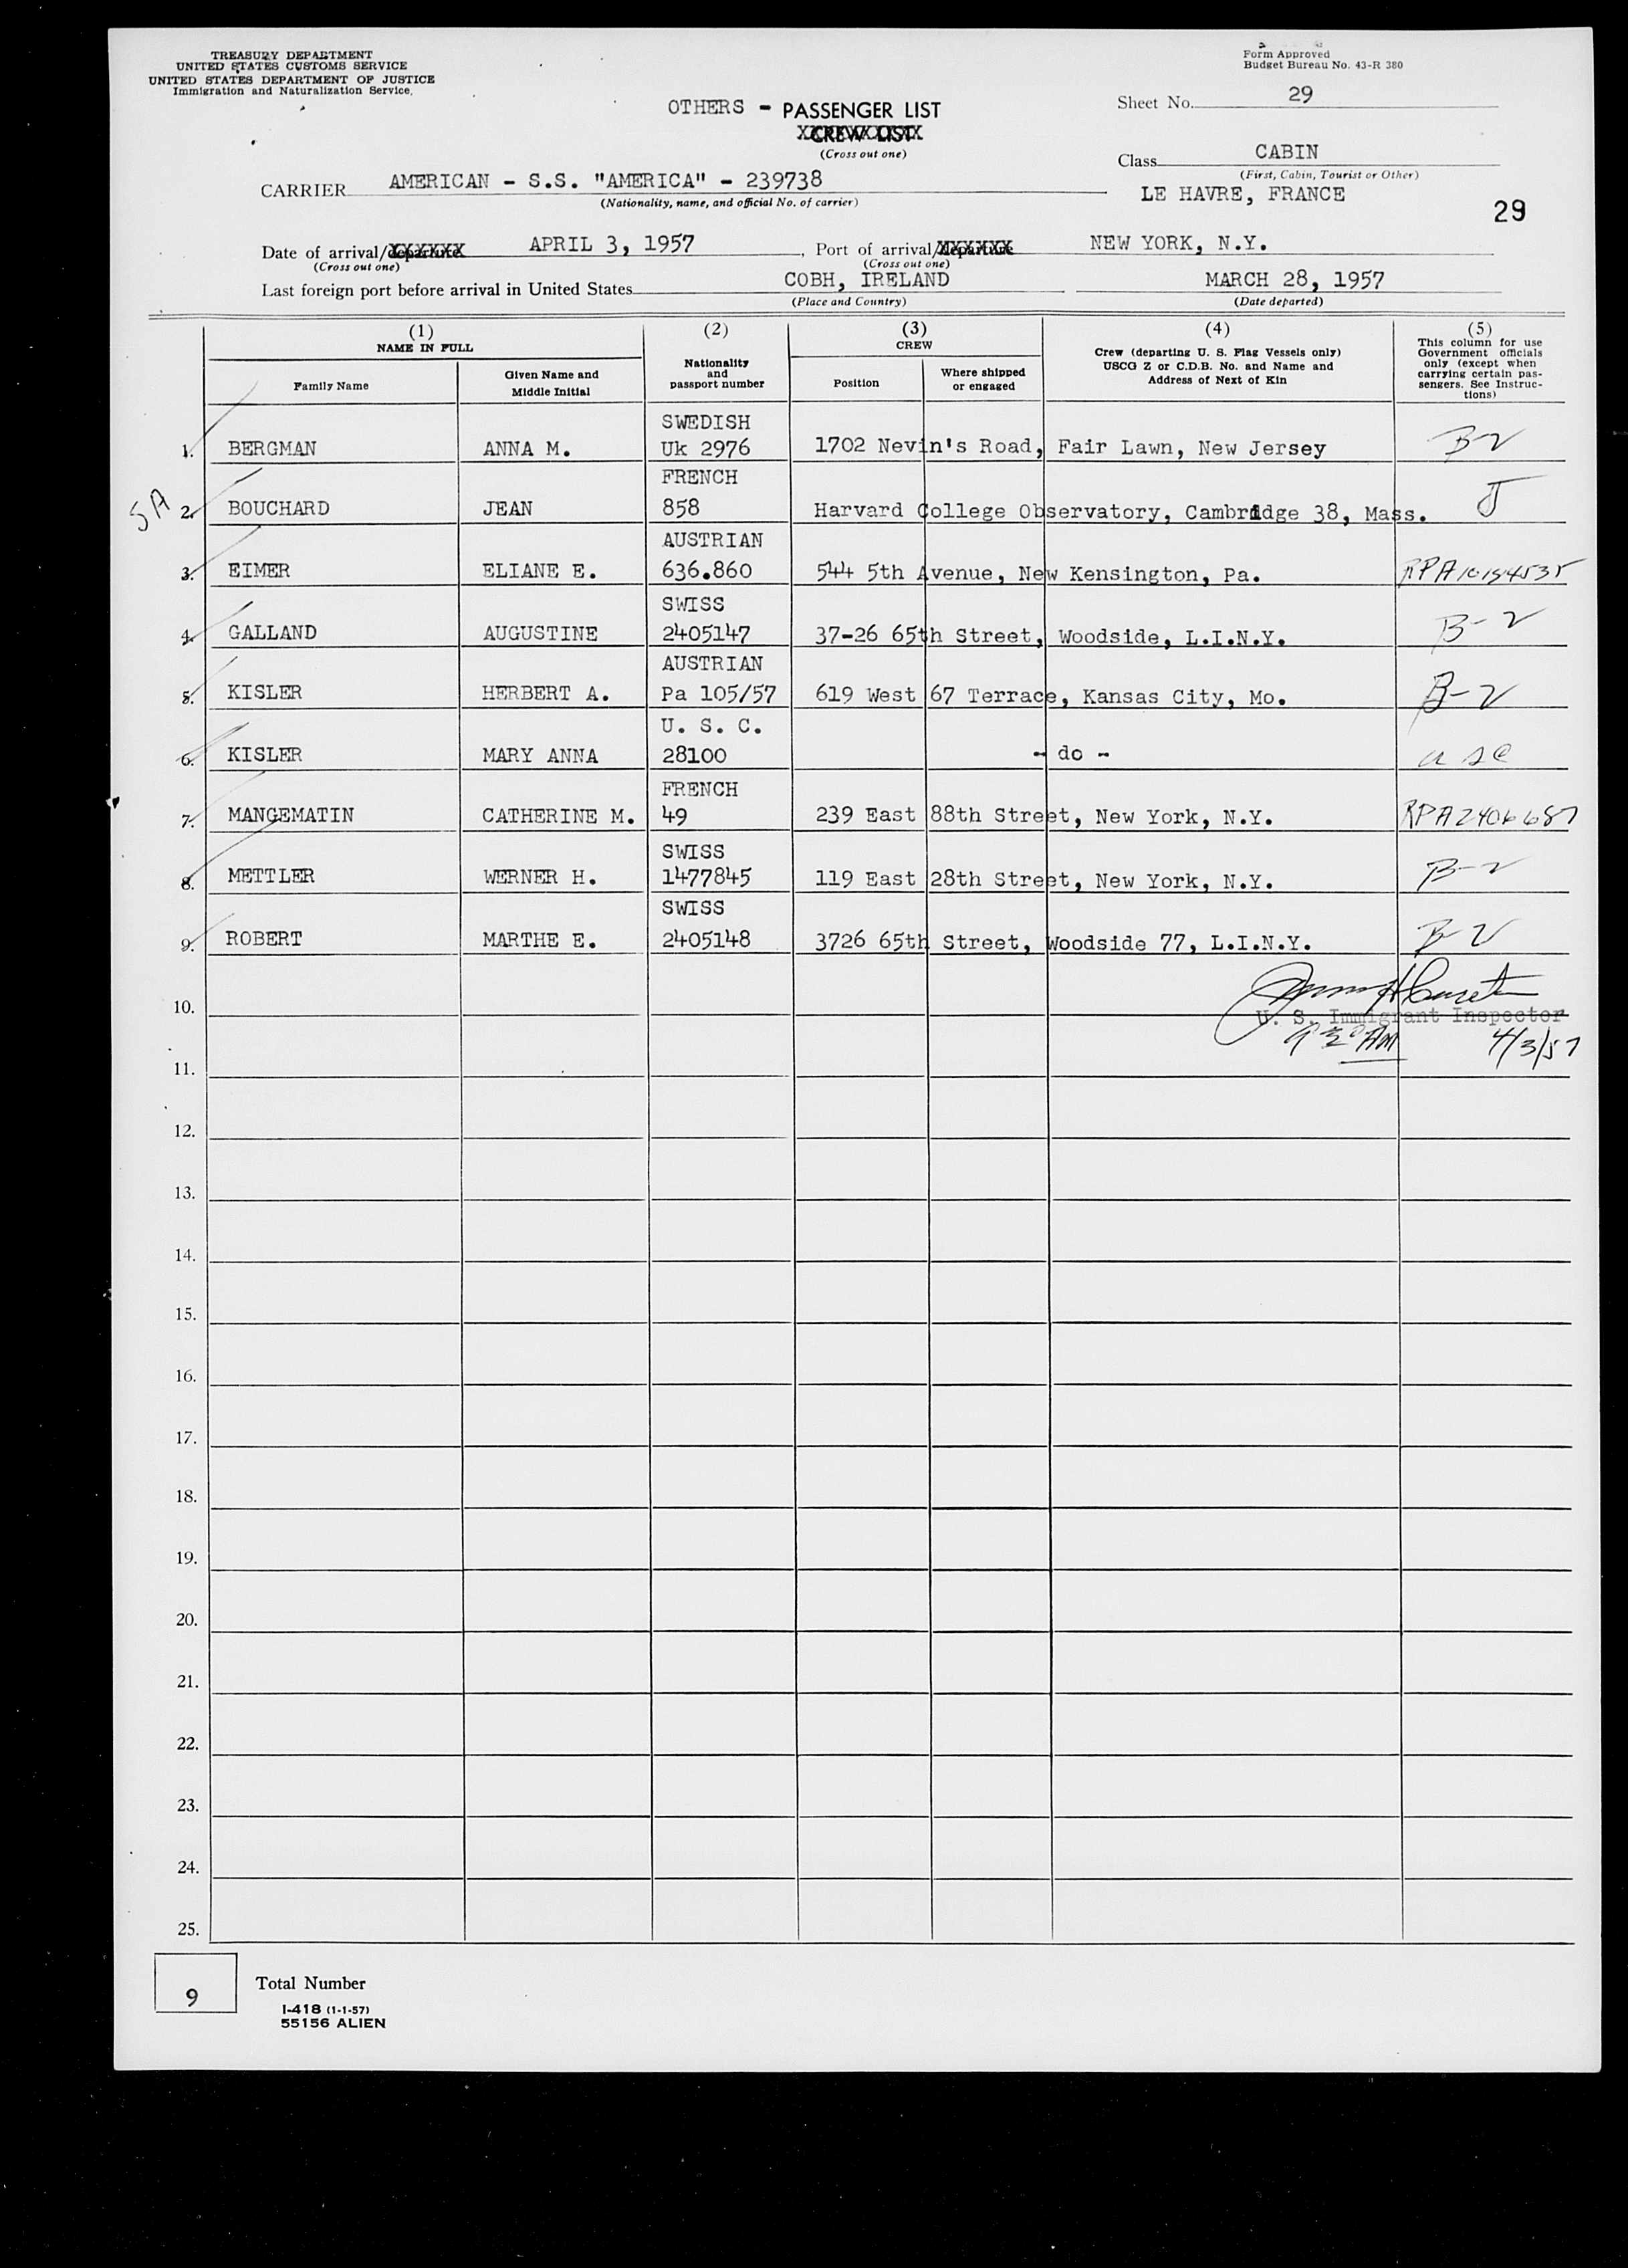 TREASURY DEPARTMENT
UNITED STATES CUSTOMS SERVICE
UNITED STATES DEPARTMENT OF JUSTICE
Immigration and Naturalization Service.
Form Approved
Budget Bureau No. 43-R 380
Sheet No. 29
OTHERS - PASSENGER LIST
CREW LIST
(Cross out one)
Class CABIN
(First, Cabin, Tourist or Other)
CARRIER AMERICAN - S.S. "AMERICA" - 239738
(Nationality, name, and official No. of carrier)
LE HAVRE, FRANCE
29
Date of arrival/departure APRIL 3, 1957, Port of arrival/departure NEW YORK, N.Y.
(Cross out one) (Cross out one)
Last foreign port before arrival in United States COBH, IRELAND MARCH 28, 1957
(Place and Country) (Date departed)
(1) (2) (3) (4) (5)
NAME IN FULL
Family Name
Given Name and
Middle Initial
Nationality
and
passport number
CREW
Position
Where shipped
or engaged
Crew (departing U. S. Flag Vessels only)
USCG Z or C.D.B. No. and Name and
Address of Next of Kin
This column for use
Government officials
only (except when
carrying certain pas-
sengers. See Instruc-
tions)
SWEDISH
1. BERGMAN ANNA M. Uk 2976 1702 Nevin's Road, Fair Lawn, New Jersey B-2
FRENCH
SA 2. BOUCHARD JEAN 858 Harvard College Observatory, Cambridge 38, Mass. J
AUSTRIAN
3. EIMER ELIANE E. 636.860 544 5th Avenue, New Kensington, Pa. RPA10154535
SWISS
4. GALLAND AUGUSTINE 2405147 37-26 65th Street, Woodside, L.I.N.Y. B-2
AUSTRIAN
5. KISLER HERBERT A. Pa 105/57 619 West 67 Terrace, Kansas City, Mo. B-2
U. S. C.
6. KISLER MARY ANNA 28100 - do - usc
FRENCH
7. MANGEMATIN CATHERINE M. 49 239 East 88th Street, New York, N.Y. RPA2406687
SWISS
8. METTLER WERNER H. 1477845 119 East 28th Street, New York, N.Y. B-2
SWISS
9. ROBERT MARTHE E. 2405148 3726 65th Street, Woodside 77, L.I.N.Y. B-2
10.
U. S. Immigrant Inspector
AM 4/3/57
11.
12.
13.
14.
15.
16.
17.
18.
19.
20.
21.
22.
23.
24.
25.
9 Total Number
I-418 (1-1-57)
55156 ALIEN